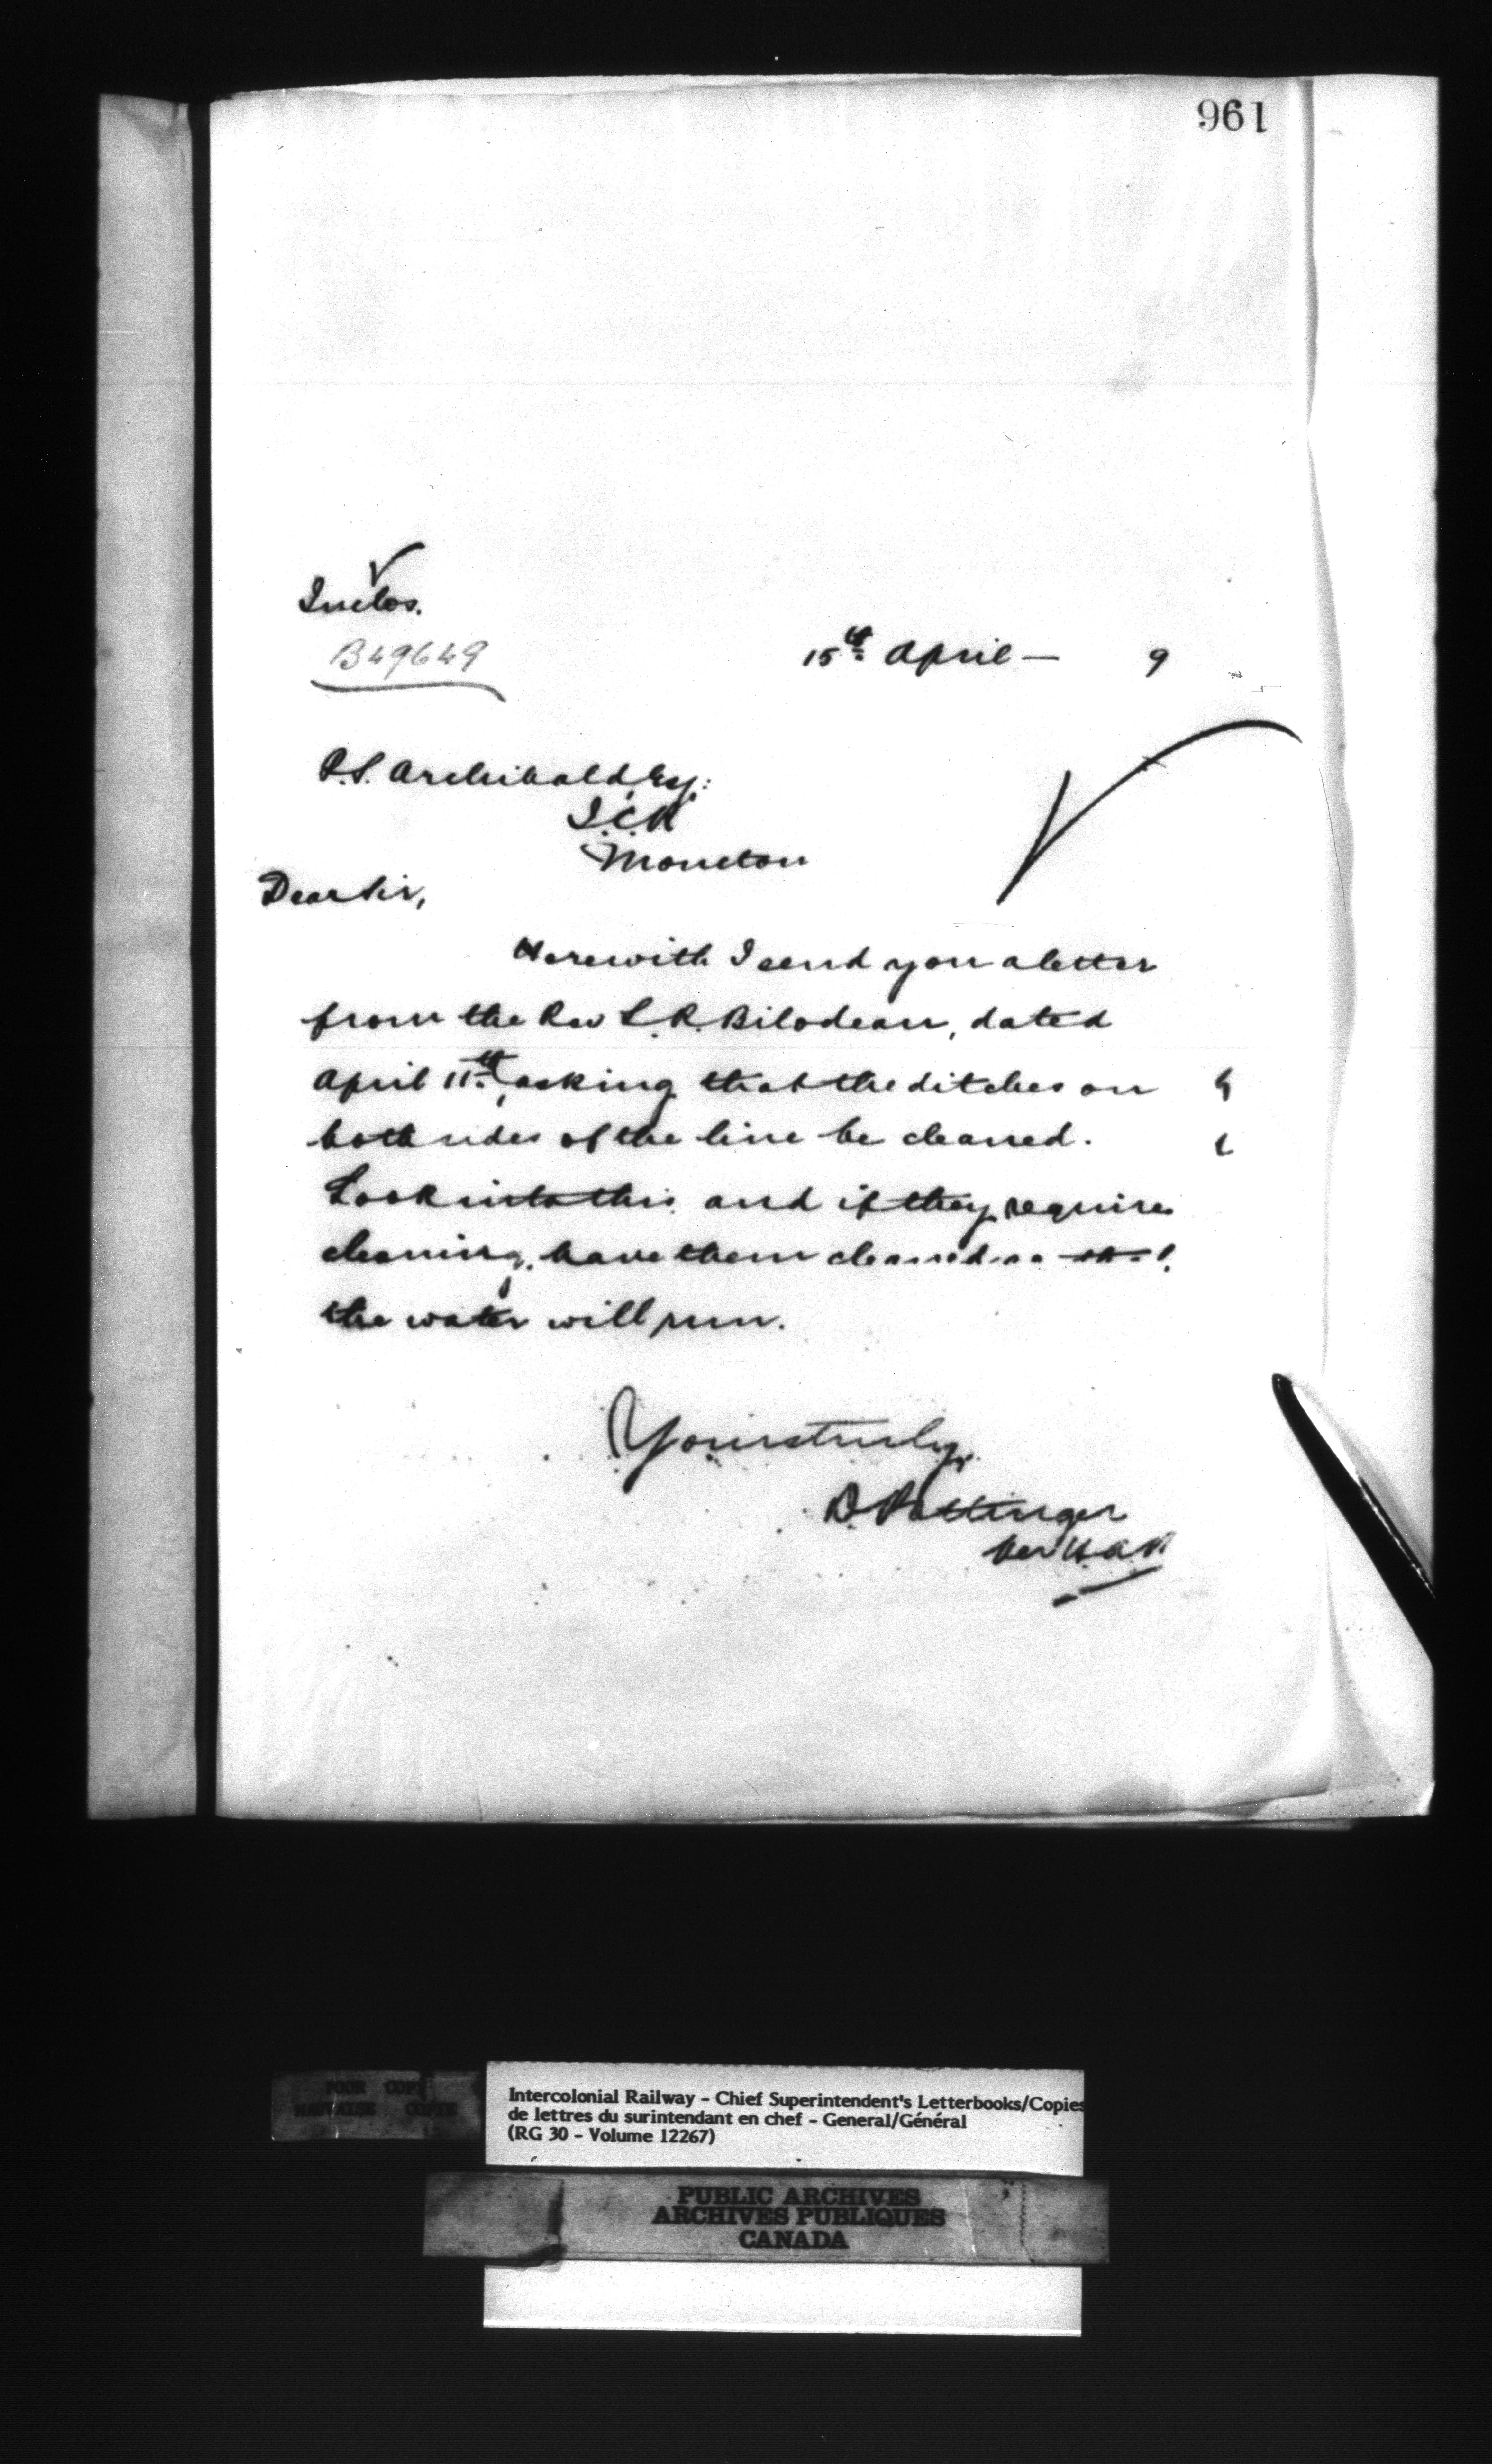 961
Inclos.
B49649
15th April — 9
P.S. Archibald, Esq:
I.C.R
Moncton
Dear Sir,
Herewith I send you a letter
from the Rev L.R. Bilodeau, dated
April 11th, asking that the ditches on
both sides of the line be cleaned.
Look into this and if they require
cleaning, have them cleaned so that
the water will run.
Yours truly,
D. Pottinger
Per
POOR COPY
MAUVAISE COPIE
Intercolonial Railway - Chief Superintendent's Letterbooks/Copies
de lettres du surintendant en chef - General/Général
(RG 30 - Volume 12267)
PUBLIC ARCHIVES
ARCHIVES PUBLIQUES
CANADA